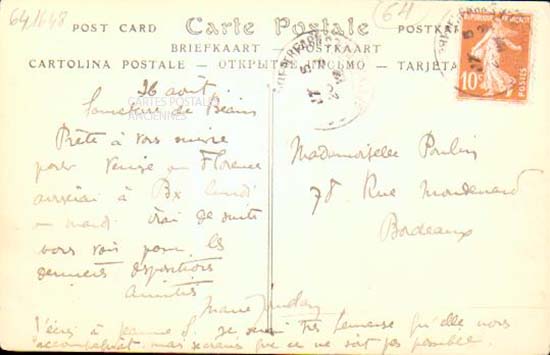 641648
64
POST CARD
Carte Postale
POSTKARTE
BRIEFKAART — POSTKAART
CARTOLINA POSTALE — ОТКРЫТОЕ ПИСЬМО — TARJETA
RÉPUBLIQUE FRANÇAISE
10c
CARTES POSTALES
ANCIENNES
26 août
Prête à vous suivre
pour Venise ou Florence
à Bx lundi
mardi de suite
vous voir pour les
dernières dispositions
Amitiés
Marie
J'écris à Jeanne S. je serai très heureuse qu'elle nous
mais je crains que ce ne soit pas possible.
Mademoiselle Poulin
78 Rue Mondenard
Bordeaux